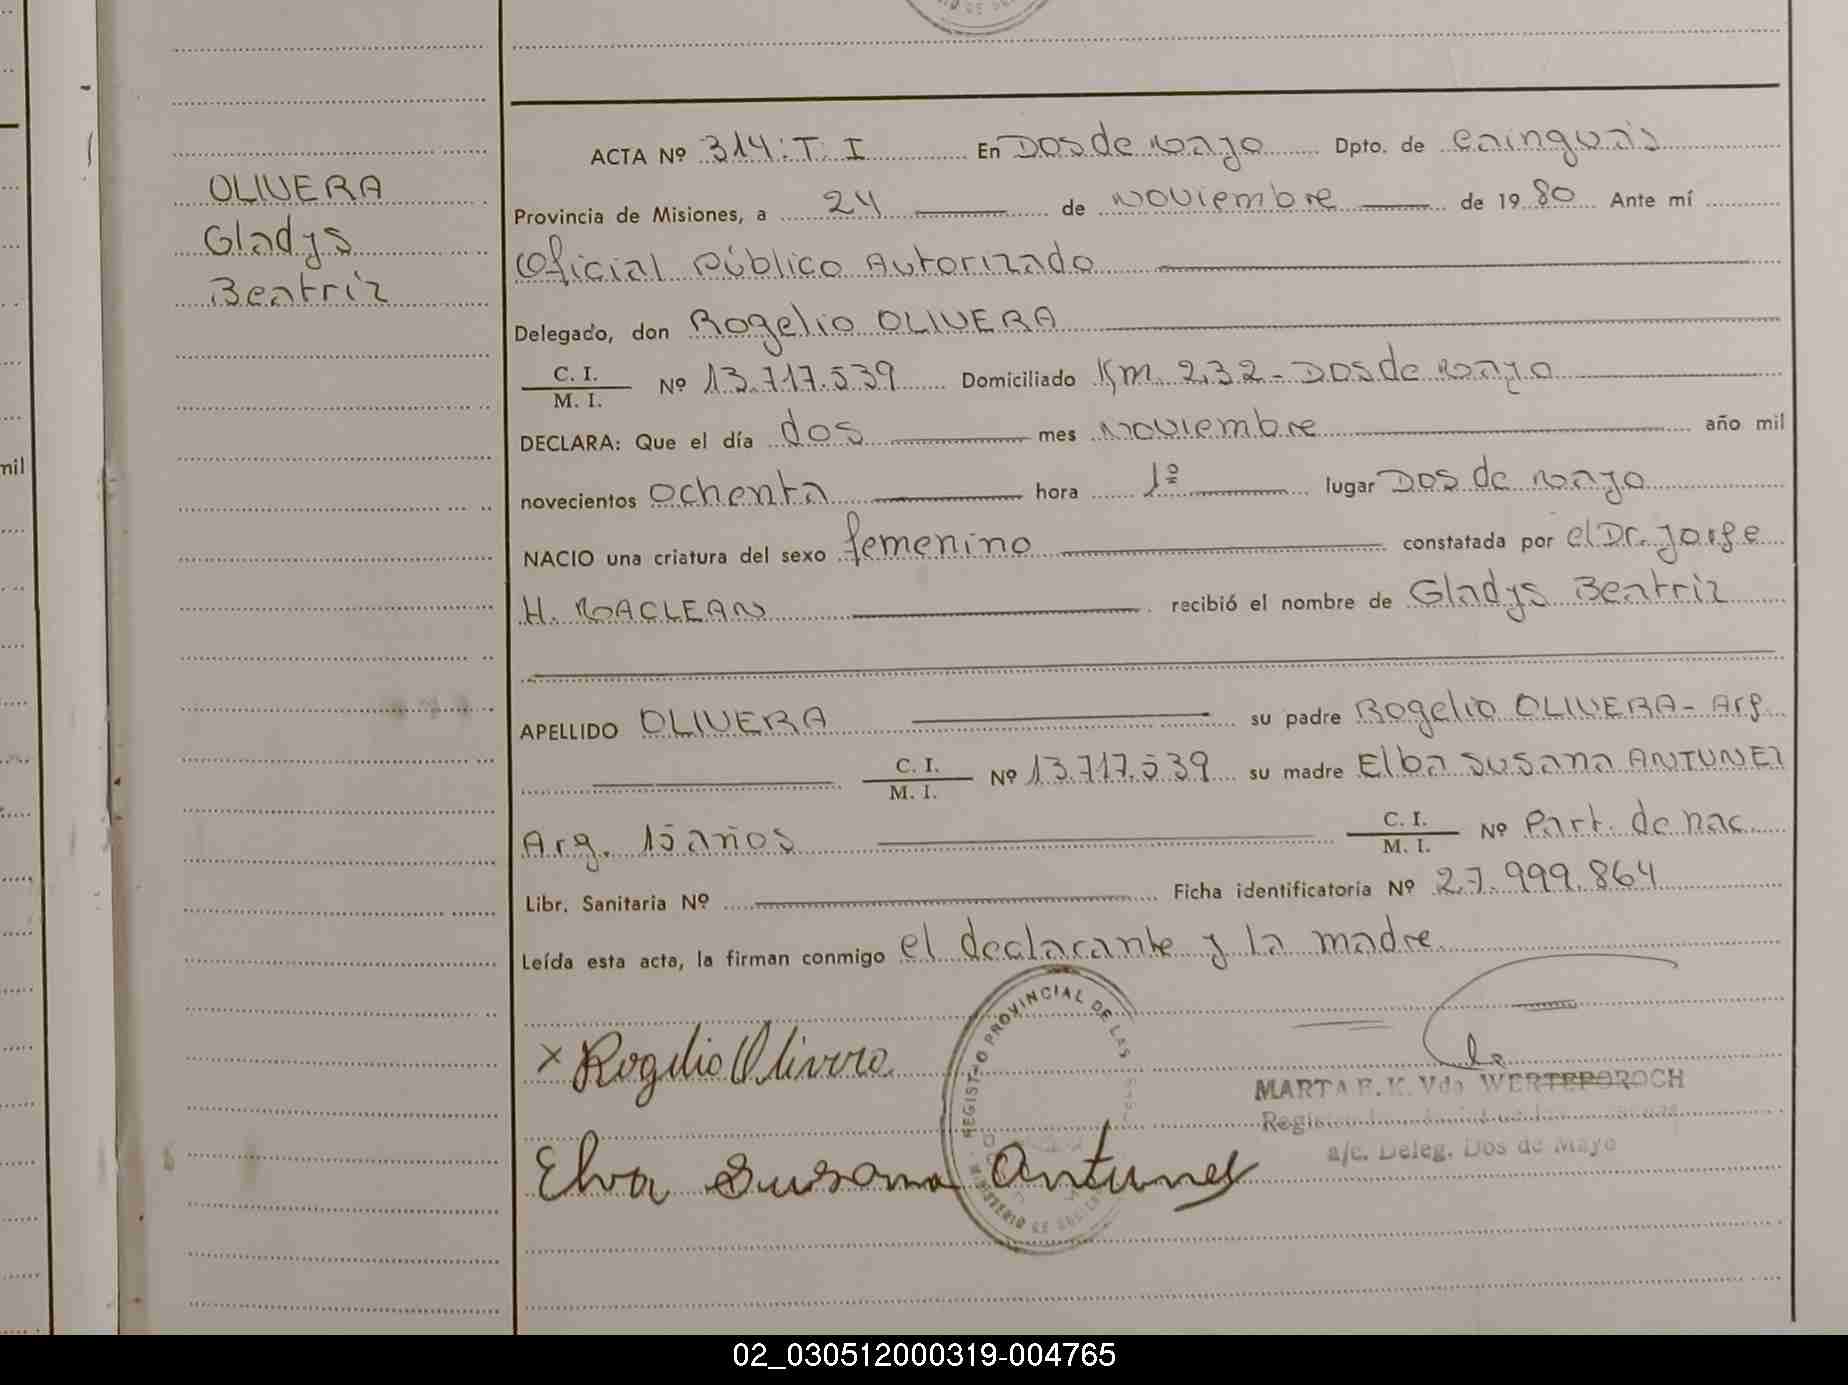 ACTA Nº 314: T. I En Dos de Mayo Dpto. de Cainguás
OLIVERA
Gladys
Beatriz
Provincia de Misiones, a 24 de Noviembre de 1980 Ante mí
Oficial Público Autorizado
Delegado, don Rogelio OLIVERA
C. I.
M. I. Nº 13.717.539 Domiciliado Km. 232 - Dos de Mayo
DECLARA: Que el día dos mes Noviembre año mil
novecientos ochenta hora 1º lugar Dos de Mayo
NACIO una criatura del sexo femenino constatada por el Dr. Jorge
H. MACLEAN recibió el nombre de Gladys Beatriz
APELLIDO OLIVERA su padre Rogelio OLIVERA - Arg
C. I.
M. I. Nº 13.717.539 su madre Elba Susana ANTUNEZ
Arg. 15 años C. I.
M. I. Nº Part. de nac.
Libr. Sanitaria Nº Ficha identificatoria Nº 27.999.864
Leída esta acta, la firman conmigo el declarante y la madre
REGISTRO PROVINCIAL DE LAS
MINISTERIO DE
x Rogelio Olivera
MARTA F. K. Vda WERTEPOROCH
a/c. Deleg. Dos de Mayo
Elva Susana Antunes
mil
02_030512000319-004765